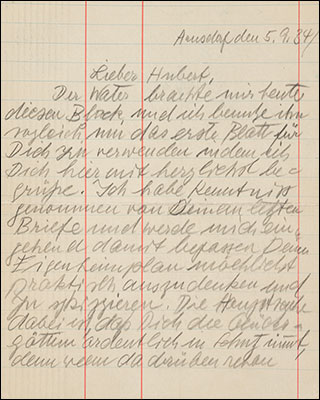 Arnsdorf den 5.9.34/
Lieber Hubert,
Der Vater brachte mir heute
diesen Block, und ich benutze ihn
sogleich, um das erste Blatt für
Dich zu verwenden indem ich
Dich hiermit herzlichst be=
grüße. Ich habe Kenntniss
genommen von Deinen letzten
Briefe und werde mich ein=
gehend damit befassen Deinen
Eigenheimplan möglichst
praktisch auszudenken und
zu skizzieren. Die Hauptsache
dabei ist, das Dich die Glücks=
göttin ordentlich in Schutz nimmt,
denn wenn da drüben schon